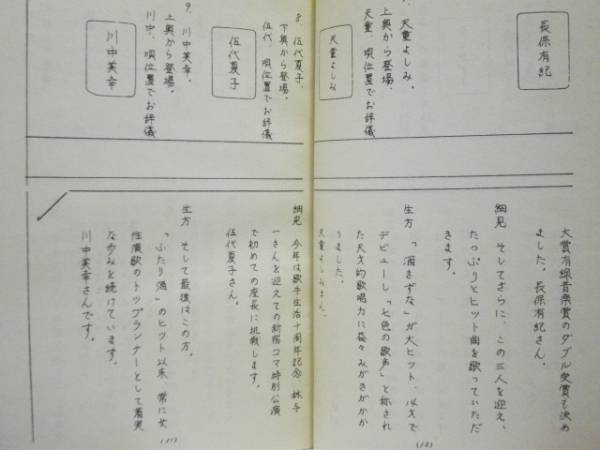 長保有紀
天童よしみ、
上奥から登場。
天童、順位置でお辞儀
天童よしみ
大賞有線音楽賞のダブル受賞も決め
ました。長保有紀さん。
細見 そしてさらに、この三人を迎え、
たっぷりとヒット曲を歌っていただ
きます。
生方 「酒きずな」が大ヒット、才で
デビューし「七色の歌声」と称され
た天才的歌唱力に益々みがきがかか
りました。
天童よしみさん。
(10)
8. 伍代夏子、
下奥から登場。
伍代、順位置でお辞儀
伍代夏子
9. 川中美幸、
上奥から登場。
川中、順位置でお辞儀
川中美幸
細見 今年は歌手生活十周年記念 林与
一さんを迎えての新宿コマ特別公演
で初めての座長に挑戦します。
伍代夏子さん。
生方 そして最後はこの方。
「ふたり酒」のヒット以来、常に女
性演歌のトップランナーとして着実
な歩みを続けています。
川中美幸さんです。
(11)